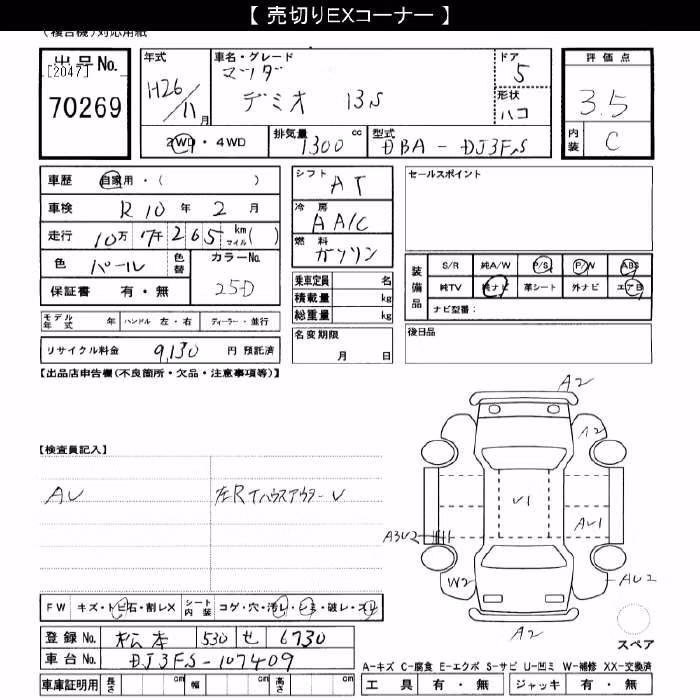 【 売切りEXコーナー 】
(複合機)対応用紙
出品No.
[2047]
70269
年式
H26/11月
車名・グレード
マツダ
デミオ 13S
ドア
5
形状
ハコ
評価点
3.5
内装
C
2WD・4WD
排気量
1300 cc
型式
DBA-DJ3FS
車歴 自家用・( )
車検 R10年2月
走行 10万7千265 km マイル( )
色 パール
色替
カラーNo.
25D
保証書 有・無
シフト
AT
冷房
AAC
燃料
ガソリン
乗車定員 名
積載量 kg
総重量 kg
セールスポイント
装備品
S/R 純A/W P/S P/W ABS
純TV 純ナビ 革シート 外ナビ エアB
ナビ型番:
モデル年式 年 ハンドル 左・右 ディーラー・並行
リサイクル料金 9,130 円 預託済
名変期限
月 日
後日品
【出品店申告欄(不良箇所・欠品・注意事項等)】
【検査員記入】
AU
左RTハウスアウターU
A2
A2
U1
AU1
A3U2
W2
AU2
A2
スペア
FW キズ・トビ石・割レX シート内装 コゲ・穴・汚レ・シミ・破レ・スレ
登録No. 松本 530 せ 6730
車台No. DJ3FS-107409
車庫証明用 長さ cm 幅 cm 高さ cm
A-キズ C-腐食 E-エクボ S-サビ U-凹ミ W-補修 XX-交換済
工具 有・無 ジャッキ 有・無